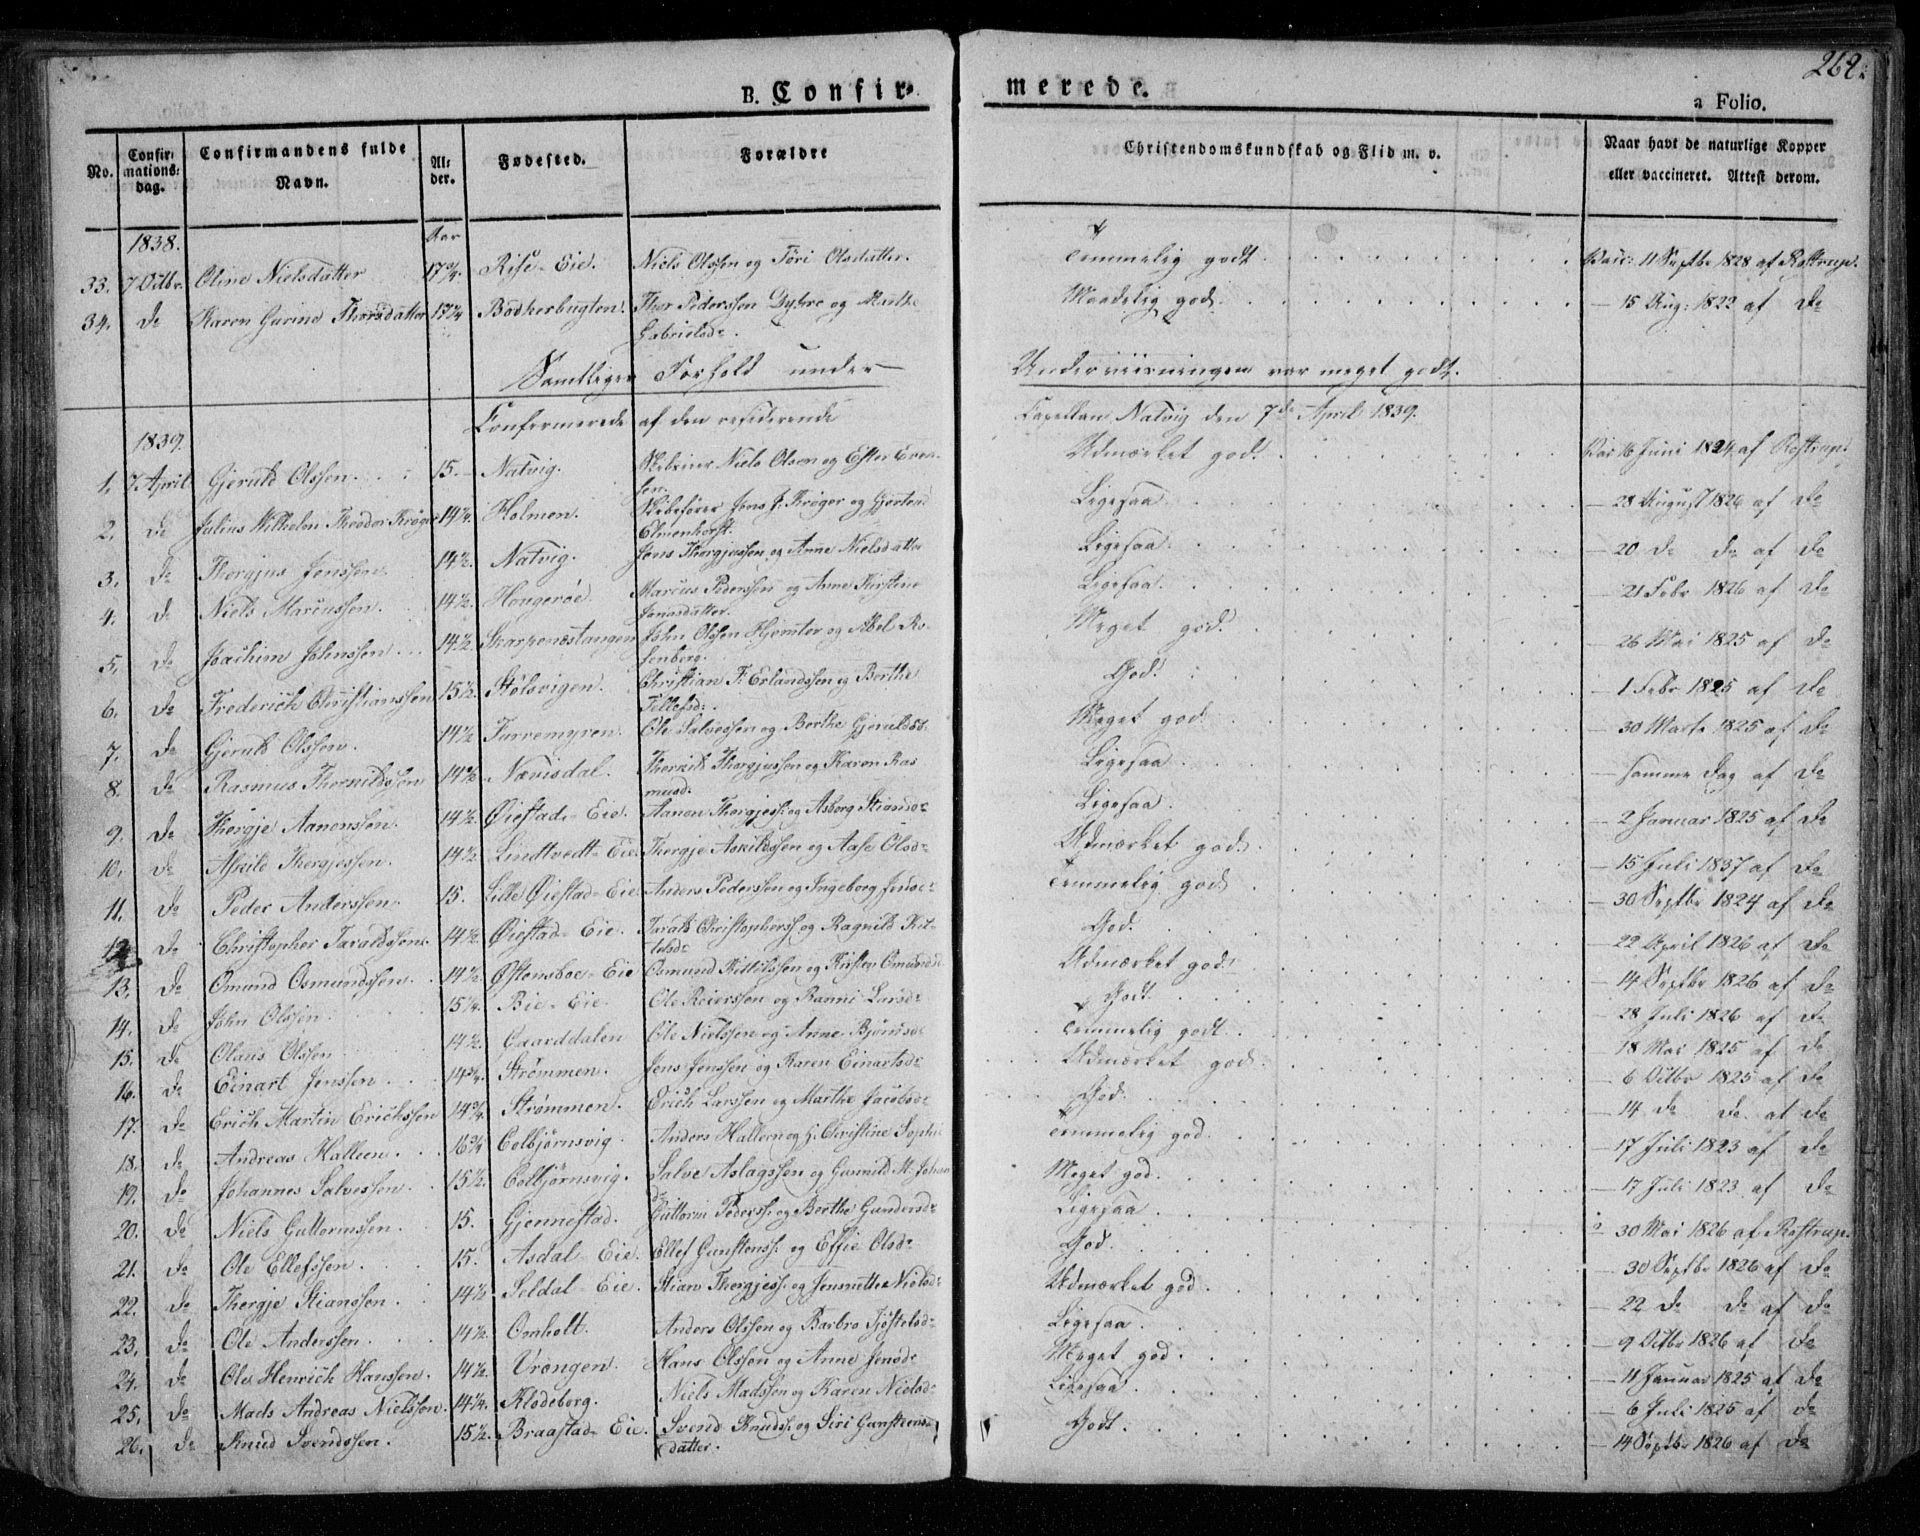 262.
B. Confir- merede. a Folio.
No. Confir-mations-dag. Confirmandens fulde Navn. Al-der. Fødested. Forældre Christendomskundskab og Flid m. v. Naar havt de naturlige Kopper eller vaccineret. Attest derom.
1838. Aar
33. 7 Octbr Oline Nielsdatter 17 Rise-Eie. Niels Olssen og Töri Olsdatter. Temmelig godt. Vac: 11 Septbr 1828 af Rostrup.
34. do Karen Gurine Thorsdatter Bödkerbugten. Thor Pederssen Dyhre og Marthe Maadelig god. 15 Aug: 1822 af do
Gabrielsdr.
Samtliges Forhold under Underviisningen var meget godt.
Confirmerede af den residerende Capellan Natvig den 7de April 1839.
1839.
1. 7 April Gjeruld Olssen. 15. Natvig. Niels Olsen og Ester Even- Udmærket god. Vac 16 Juni 1824 af Rostrup.
sen.
2. do Julius Wilhelm Theodor Krøger 14¼. Holmen. Skibsfører Jens J. Krøger og Ligesaa 28 August 1826 af do
Elmenhorst.
3. do Thorgjus Jenssen 14½. Natvig. Jens Thorgjussen og Anne Nielsdatter Ligesaa. 20 do do af do
4. do Niels Marcussen. 14½ Hougerøe. Marcus Pederssen og Anne Kirstine Ligesaa. 21 Febr 1826 af do
Jonasdatter.
5. do Joachim Johnssen 14½. Skarpenæstangen John Olssen Hjemter og Abel Ro- Meget god. 26 Mai 1825 af do
senberg.
6. do Frederich Christianssen 15½. Stølsvigen. Christian F. Erlandssen og Berthe God. 1 Febr 1825 af do
Tellefsd:
7. do Gjeruld Olssen. 14½ Furremyren. Ole Salvessen og Berthe Gjeruldsd. Meget god 30 Marts 1825 af do
8. do Rasmus Thorkildssen Nævisdal. Thorkild Thorgjussen og Karen Ras Ligesaa. samme Dag af do
musd.
9. do Thergje Aanonssen. 14½ Øiestad-Eie. Aanon Thergjess. og Asborg Stiansdr Ligesaa. 2 Januar 1825 af do
10. do Askild Thergjessen. 14½ Lindtvedt-Eie. Thergje Askildssen og Aase Olsdr Udmærket god. 15 Juli 1837 af do
11. do Peder Anderssen. 15. Lille Øiestad-Eie Anders Pederssen og Ingeborg Jensdr Temmelig god 30 Septbr 1824 af do
12. do Christopher Taraldssen. 14½ Øiestad-Eie. Tarald Christopherss. og Ragnild Kit God. 22 April 1826 af do
telsdr
13. do Omund Osmundssen. 14½. Østensboe-Eie Osmund Kittilssen og Kirsten Omundsd Udmærket god. 14 Septbr 1826 af do
14. do John Olssen. 15¼. Bie-Eie. Ole Reierssen og Ranni Larsdr Godt. 28 Juli 1826 af do
15. do Olaus Olssen 14½. Gaarddalen Ole Nielssen og Anne Bjönsdr Temmelig godt. 18 Mai 1825 af do
16. do Einart Jenssen 14¾. Strømmen. Jens Jenssen og Karen Einartsdr Udmærket god. 6 Octbr 1825 af do
17. do Erich Martin Erichssen 14¾. Strømmen. Erich Larssen og Marthe Jacobsdr God. 14 do do af do
18. do Andreas Halleen. 16¾ Colbjørnsvig. Anders Halleen og Christine Sophie Temmelig god. 17 Juli 1823 af do
19. do Johannes Salvessen. 15½. Colbjørnsvig. Salve Aslagssen og Gunnild M. Johan Meget god. 17 Juli 1823 af do
20. do Niels Guttormssen. 15. Gjennestad. Guttorm Pederss. og Berthe Gundersdr Ligesaa. 30 Mai 1826 af Rostrup.
21. do Ole Ellefssen. 15. Asdal-Eie. Ellef Gunstenss. og Effie Olsdr God. 30 Septbr 1826 af do
22. do Thergje Stianssen. 14½ Seldal-Eie. Stian Thergjess. og Nielsdr Udmærket god. 22 do do af do
23. do Ole Anderssen. 14½. Omholt. Anders Olssen og Barbro Tjöstelsdr Ligesaa. 9 Octbr 1826 af do
24. do Ole Henrich Hanssen. 14½. Vrængen. Hans Olssen og Anne Jensdr Meget god. 11 Januar 1825 af do
25. do Mads Andreas Nielssen. 14¼. Klodeborg. Niels Madssen og Karen Nielsdr Ligesaa. 6 Juli 1825 af do
26. do Knud Svendssen. 15½. Braastad-Eie. Svend Knudss. og Siri Gunsteens- Godt. 14 Septbr 1826 af do
datter.